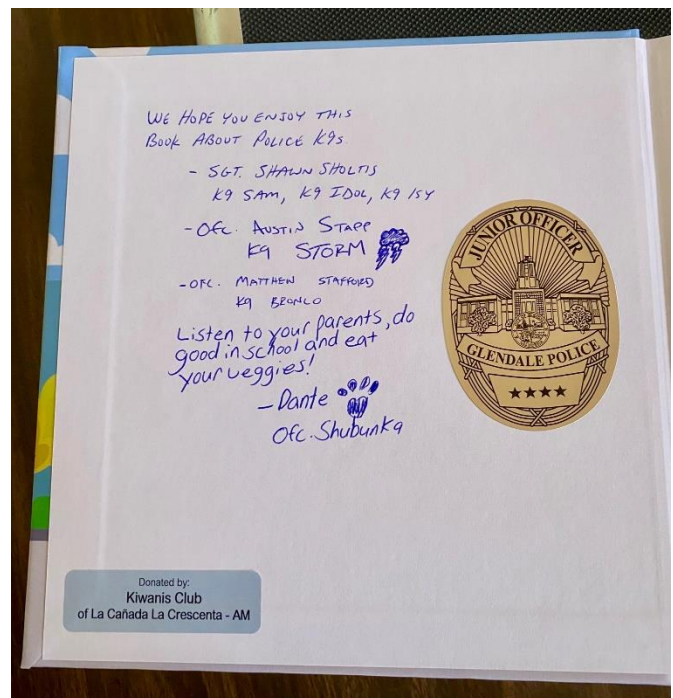 WE HOPE YOU ENJOY THIS
BOOK ABOUT POLICE K9s.
- SGT. SHAWN SHOLTIS
K9 SAM, K9 IDOL, K9 ISY
- OFC. AUSTIN STAPP
K9 STORM
- OFC. MATTHEW STAFFORD
K9 BRONCO
Listen to your parents, do
good in school and eat
your veggies!
- Dante
Ofc. Shubunka
JUNIOR OFFICER
GLENDALE POLICE
Donated by:
Kiwanis Club
of La Cañada La Crescenta - AM